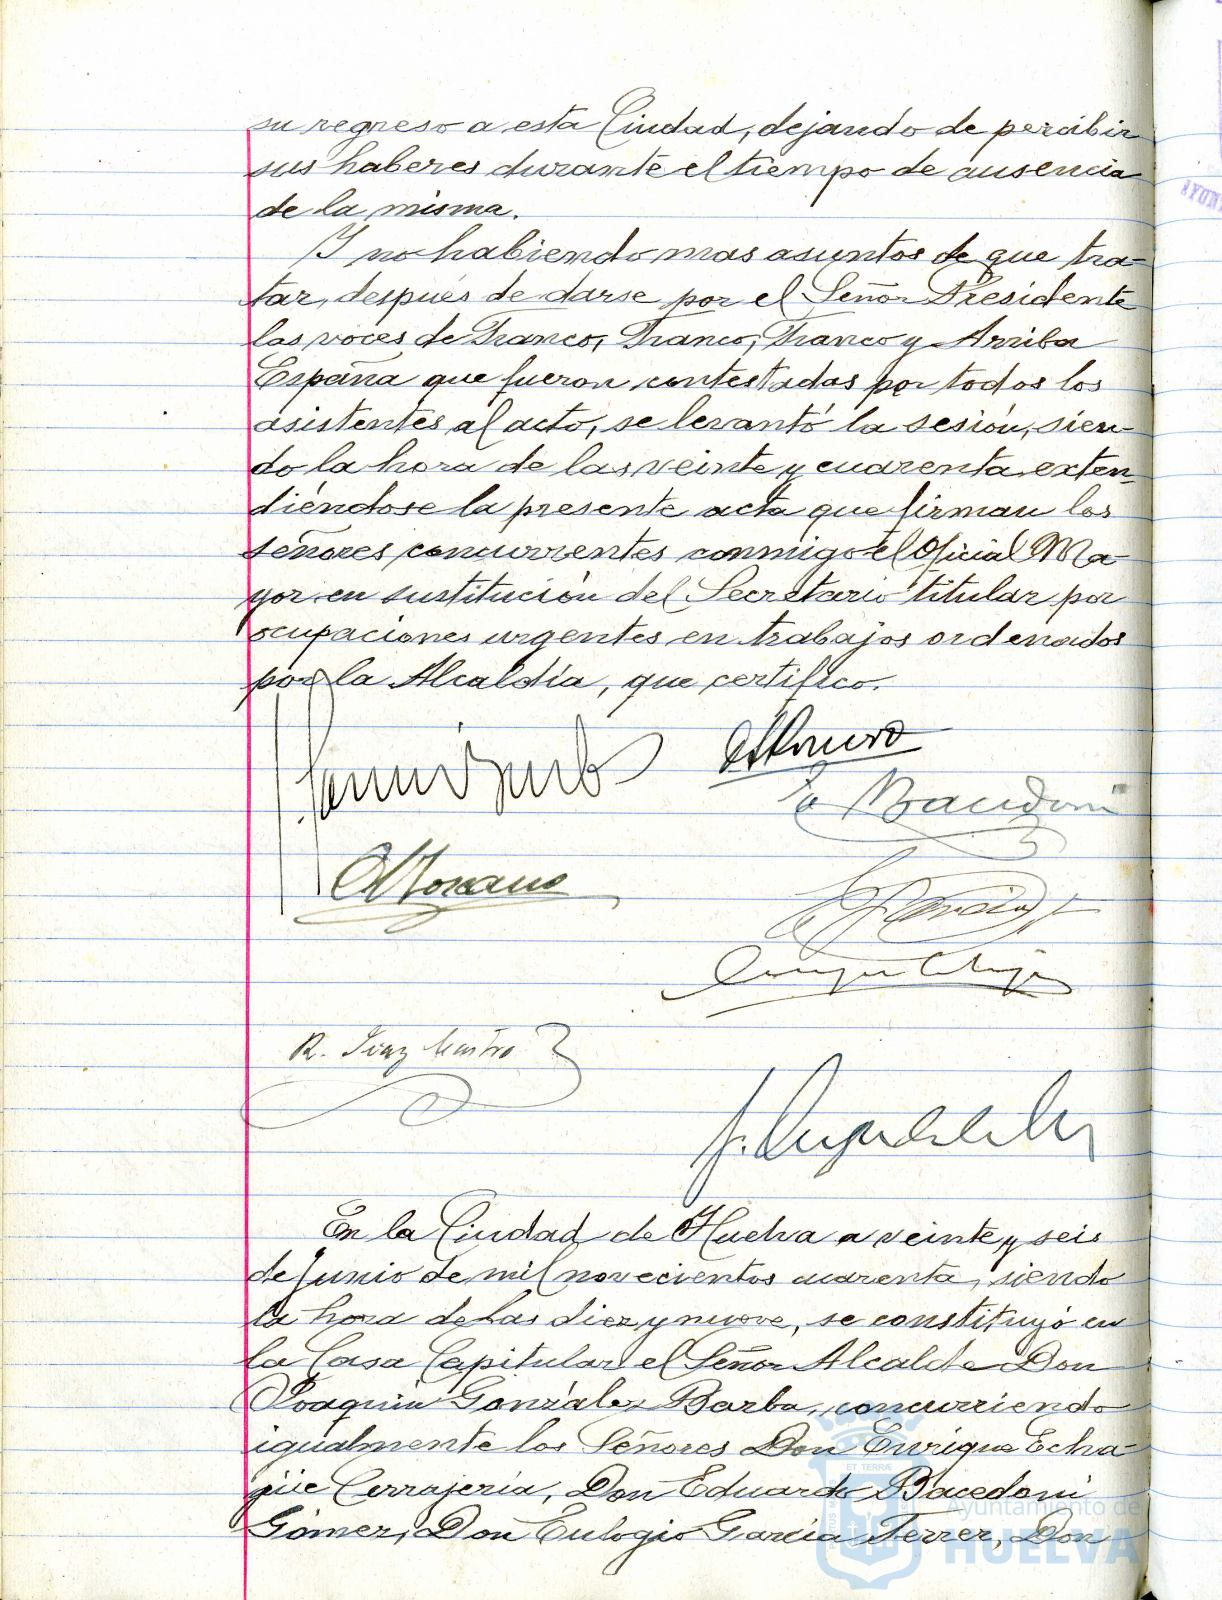 su regreso a esta Ciudad, dejando de percibir
sus haberes durante el tiempo de ausencia
de la misma.
Y no habiendo mas asuntos de que tra-
tar, después de darse por el Señor Presidente
las voces de Franco, Franco, Franco y Arriba
España que fueron contestadas por todos los
asistentes al acto, se levantó la sesión, sien-
do la hora de las veinte y cuarenta, exten-
diéndose la presente acta que firman los
señores concurrentes conmigo el Oficial Ma-
yor en sustitución del Secretario titular por
ocupaciones urgentes en trabajos ordenados
por la Alcaldía, que certifico.
R. Diaz
En la Ciudad de Huelva a veinte y seis
de Junio de mil novecientos cuarenta, siendo
la hora de las diez y nueve, se constituyó en
la Casa Capitular el Señor Alcalde Don
Joaquín González Barba, concurriendo
igualmente los Señores Don Enrique Echa-
güe Cerrajería, Don Eduardo Bacedoni
Gómez, Don Eulogio García Ferrer, Don
ET TERRÆ
Ayuntamiento de
HUELVA